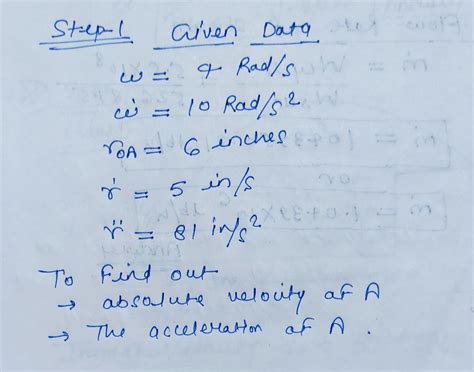 Step-1 Given Data
ω = 4 Rad/s
ω̇ = 10 Rad/s²
r_OA = 6 inches
ṙ = 5 in/s
r̈ = 81 in/s²
To Find out
→ absolute velocity of A
→ The acceleration of A.